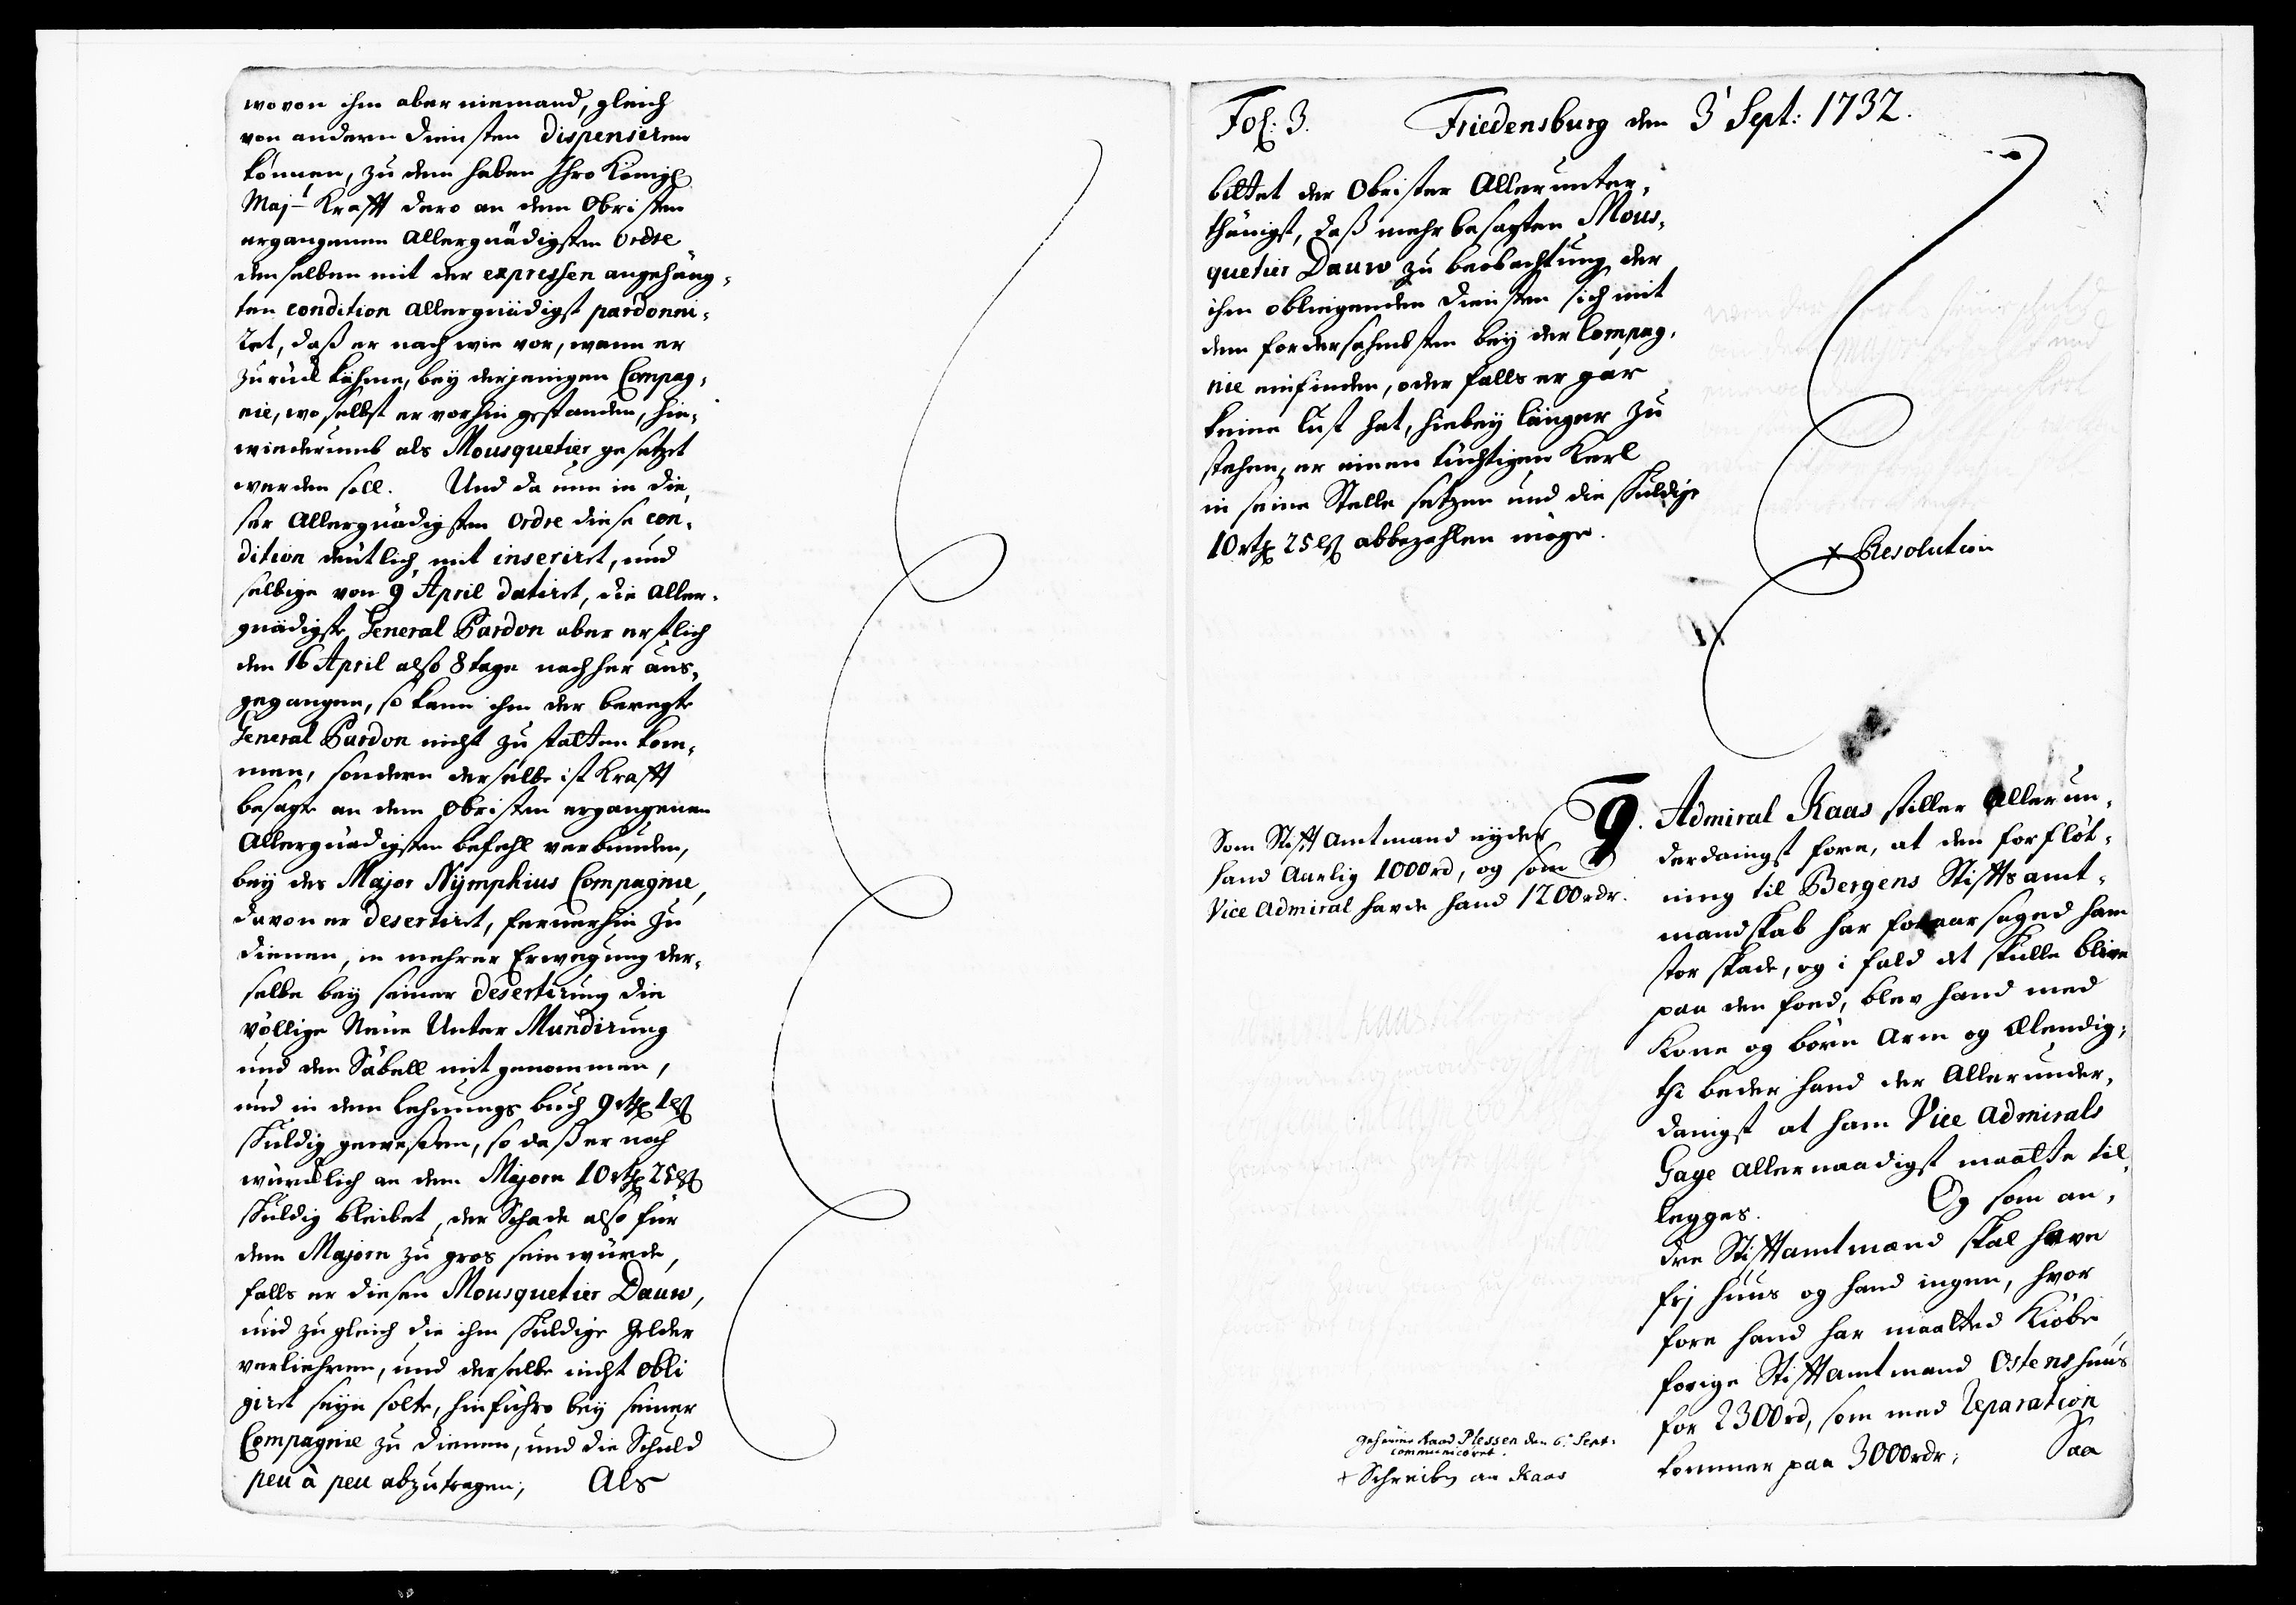 wovon ihm aber niemand, gleich
von andern Diensten dispensiren
können, zu dem haben Ihro Königl
Maj:t Krafft dero an dem Obristen
ergangenen Allergnädigsten Ordre
denselben mit der expressen angehäng-
ten condition Allergnädigst pardonni-
ret, daß er nach wie vor, wann er
zurück kähme, bey derjenigen Compag-
nie, woselbst er vorhin gestanden, hin-
wiederumb als Mousquetier gesetzet
werden soll. Und da nun in die-
ser Allergnädigsten Ordre diese con-
dition deütlich mit inserirt, und
selbige von 9' April datirt, die Aller-
gnädigste General Pardon aber erstlich
den 16 April also 8 tage nachher aus-
gegangen, so kann ihm der beregte
General Pardon nicht zu statten kom-
men, sondern derselbe ist Krafft
besagte an dem Obristen ergangenen
Allergnädigsten befehl verbunden,
bey des Major Nymphius Compagnie,
davon er desertirt, fernerhin zu
dienen, in mehrer Erwegung der-
selbe bey seiner desertirung die
völlige Neüe Unter Mundirung
und den Säbell mit genommen,
und in dem lehnungs buch 9 rthl 1 ß
schuldig gewesen, so daß er noch
würcklich an dem Majorn 10 rthl 25 ß
schuldig bleibet, der Schade also für
dem Majorn zu gros sein würde,
falls er diesen Mousquetier Dauw,
und zugleich die ihm schuldige Gelder
verliehren, und derselbe nicht obli
girt seyn solte, hinführo bey seiner
Compagnie zu dienen, und die Schuld
peu à peu abzutragen; Als
Fol: 3. Friedensburg den 3' Sept: 1732.
bittet der Obrister Allerunter-
thänigst, daß mehr besagten Mous-
quetier Dauw zu beobachtung der
ihm obliegenden Diensten sich mit
dem fordersahmbsten bey der Compag-
nie einfinden, oder falls er gar
keine lust hat, hiebey länger zu
stehen, er einen tüchtigen Kerl
in seine Stelle setzen und die schuldige
10 rthl 25 ß abbezahlen möge.
+ Resolution
Som Stifft Amtmand nyder
hand Aarlig 1000 rd, og som
Vice Admiral havde hand 1200 rdr.
9. Admiral Kaas stiller Allerun-
derdaingst fore, at den forfløt-
ning til Bergens Stiffts amt-
mandskab har foraarsaged ham
stor skade, og i fald det skulle blive
paa den foed, blev hand med
Kone og børn Arm og Elendig;
thi beder hand der Allerunder-
danigst at ham Vice Admirals
Gage Allernaadigst maatte til-
legges. Og som an-
dre Stifftamtmænd skal have
frj huus og hand ingen, hvor
fore hand har maatted kiøbe
forige Stifftamtmand Ostens huus
for 2300 rd, som med reparation
kommer paa 3000 rdr; Saa
geheime Raad Plessen den 6' Sept:
communiceret.
+ Schreiben an Kaas